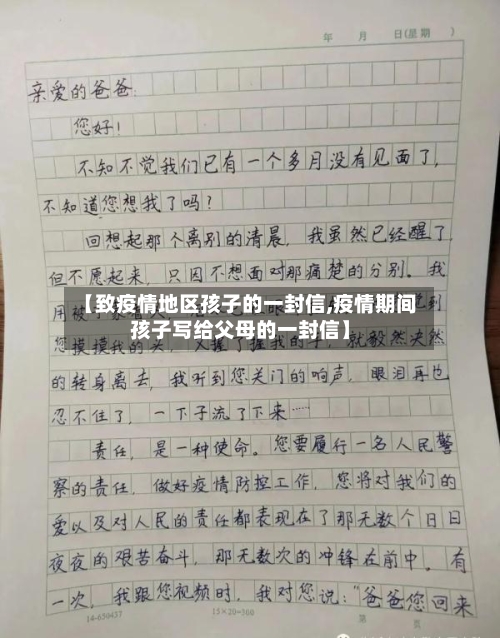 年 月 日(星期 )
亲爱的爸爸:
您好!
不知不觉我们已有一个多月没有见面了,
不知道您想我了吗?
回想起那个离别的清晨,我虽然已经醒了,
但不愿起来,只因不想面对那痛楚的分别。我
用被
【致疫情地区孩子的一封信,疫情期间
孩子写给父母的一封信】
到
您摸摸我的头,又握了握我的手,就毅然决然
的转身离去,我听到您关门的响声,眼泪再也
忍不住了,一下子流了下来……
责任,是一种使命。您要履行一名人民警
察的责任,做好疫情防控工作,您将对我们的
爱以及对人民的责任都表现在了那无数个日日
夜夜的艰苦奋斗,那无数次的冲锋在前中。有
一次,我跟您视频时,我对您说:“爸爸您回来
14-659457
15×20=300
第 页